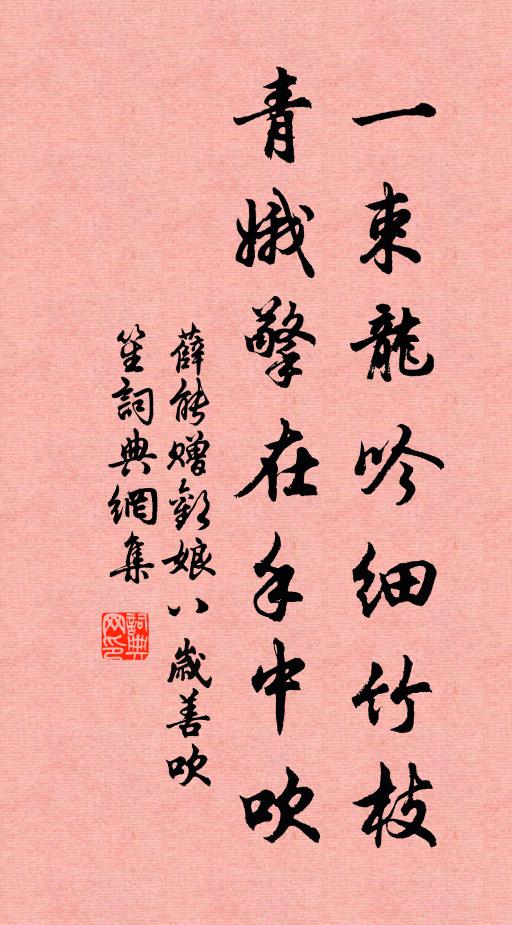 一束龍吟細竹枝
青娥擎在手中吹
薛能贈歡娘八歲善吹
笙詞典網集
詞典网印